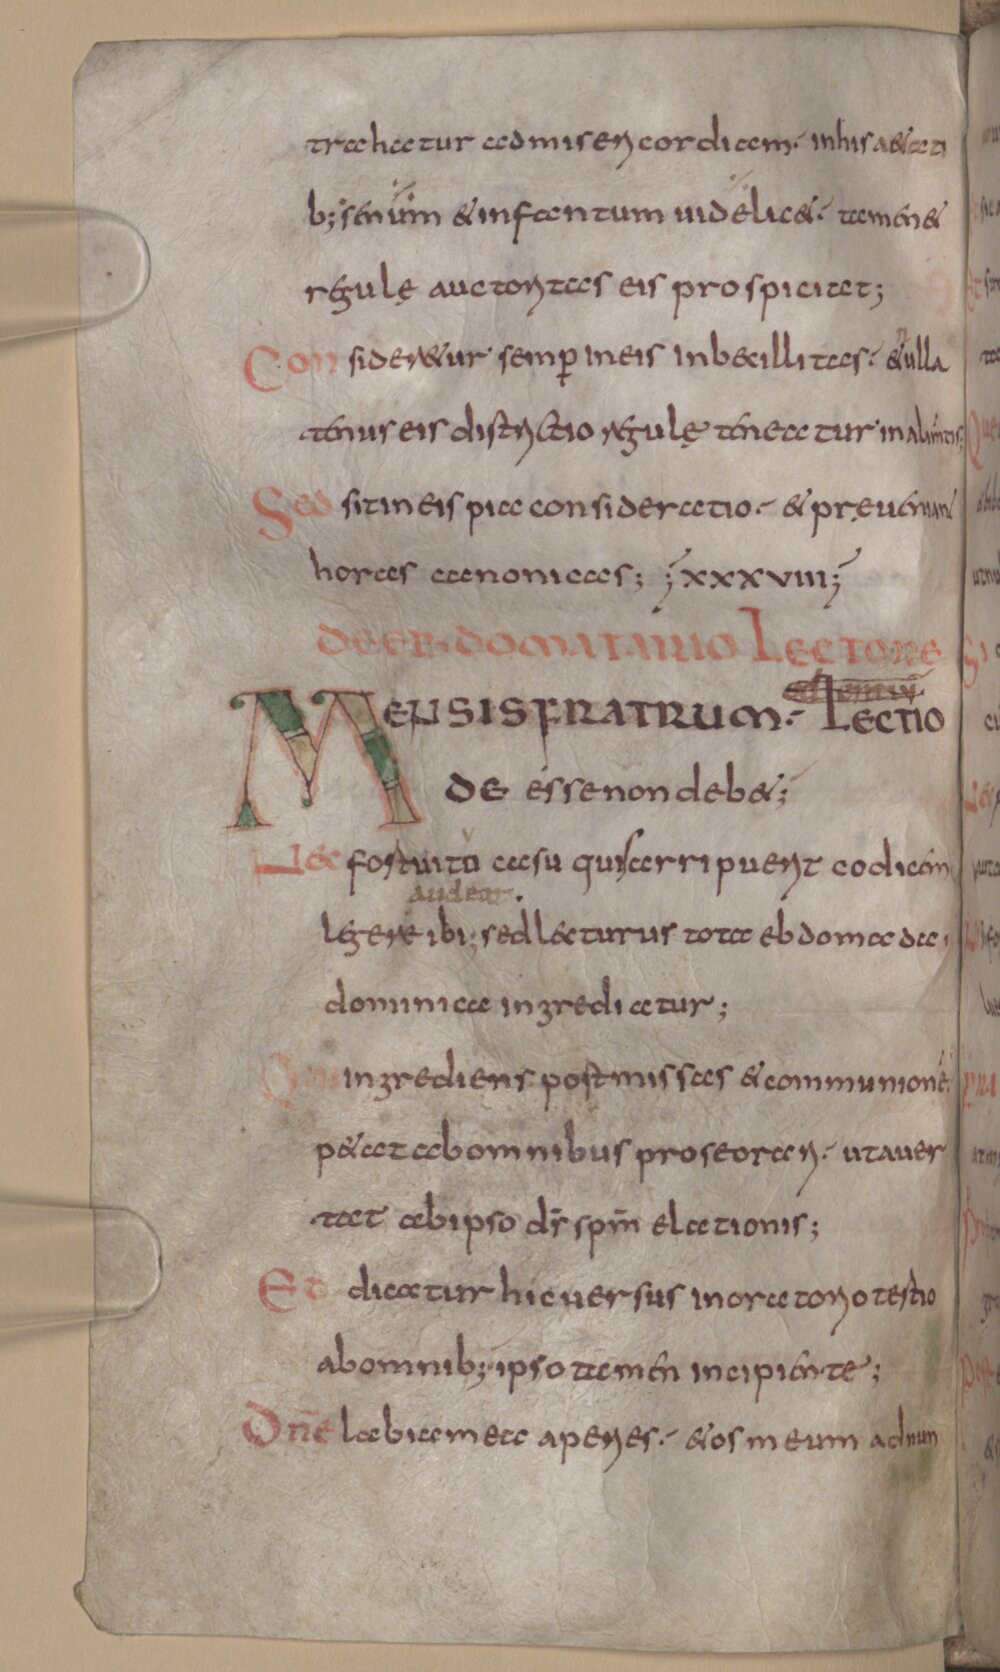 trahatur ad misericordiam. in his aetati
b; senum & infantum uidelic&. tamen &
regulę auctoritas eis prospiciat;
Con sider&ur semp̄ in eis inbecillitas. & nulla
tenus eis districtio regulę teneatur in alimtis;
Sed sit in eis pia consideratio. & pręueniant
horas canonicas; ; xxxviii;
DE EBDOMATARIO LECTORE
MENSIS FRATRUM. LECTIO
DE esse non deb&;
Nec fortuitu casu qui arripuerit codicem
audeat.
legere ibi; sed lecturus tota ebdomada
dominica ingrediatur;
Qui ingrediens post missas & communionē
p&at ab omnibus pro se orari. ut auer
tat ab ipso d̄s spm̄ elationis;
Et dicatur hic uersus in oratorio tertio
ab omnib; ipso tamen incipiente;
Dn̄e labia mea aperies. & os meum adnun